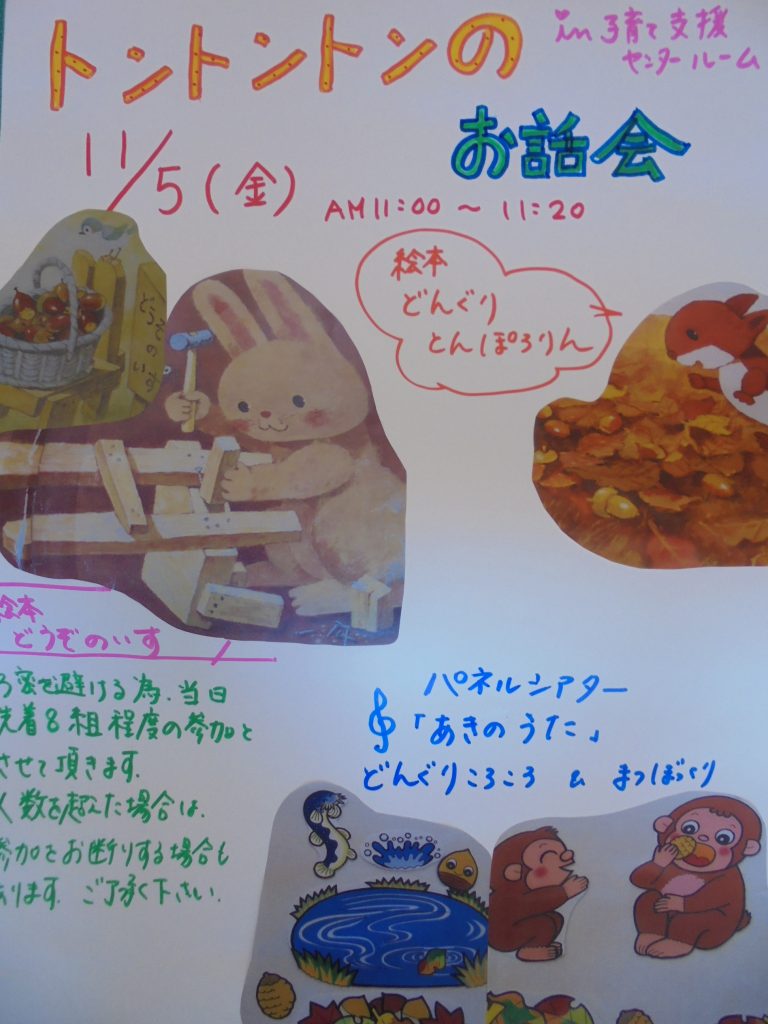 トントントンの
in 子育て支援
センタールーム
お話会
11/5(金)
AM11:00 ~ 11:20
絵本
どんぐり
とんぽろりん
どうぞのいす
絵本
どうぞのいす
3密を避ける為、当日
先着8組程度の参加と
させて頂きます。
人数を超えた場合は、
参加をお断りする場合も
あります。ご了承く下さい。
パネルシアター
「あきのうた」
どんぐりころころ & まつぼっくり